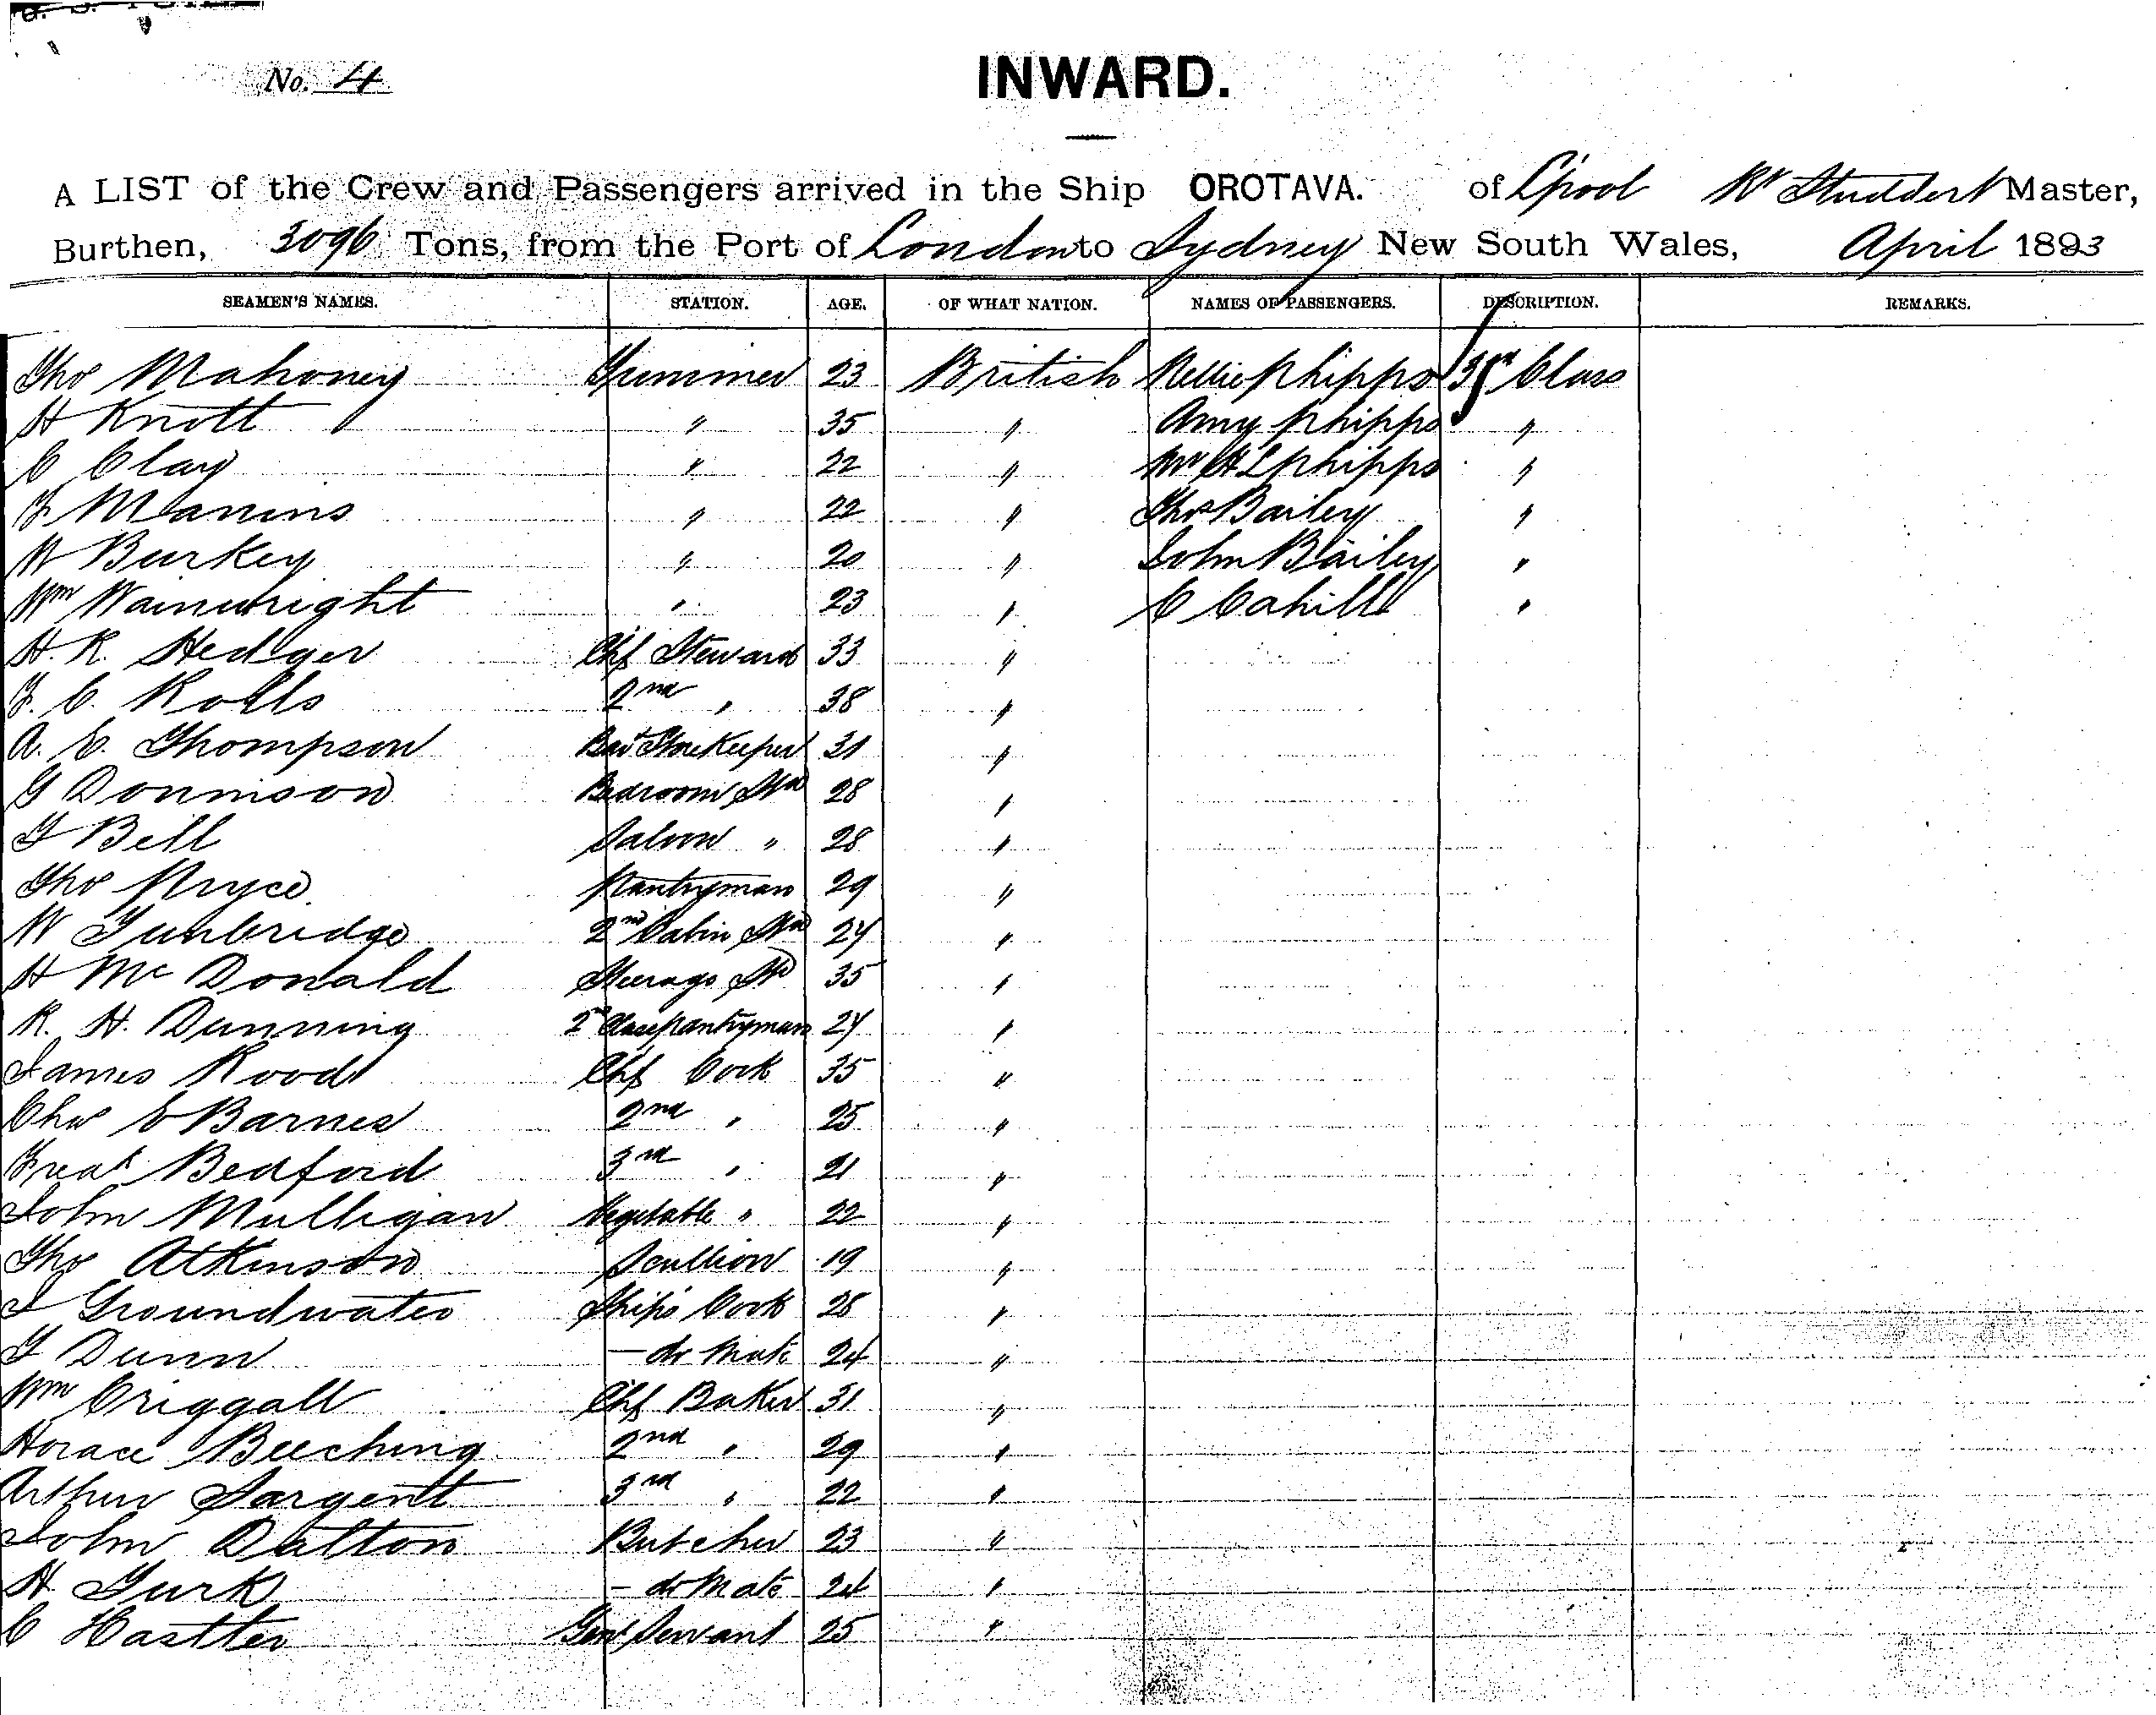 No. 4
INWARD.
A LIST of the Crew and Passengers arrived in the Ship OROTAVA. of L'pool Rt Studdert Master,
Burthen, 3096 Tons, from the Port of London to Sydney New South Wales, April 1893
SEAMEN'S NAMES. STATION. AGE. OF WHAT NATION. NAMES OF PASSENGERS. DESCRIPTION. REMARKS.
Thos Mahoney Trimmer 23 British Nellie Phipps 3rd Class
H Knott " 35 " Amy Phipps "
C Clay " 22 " Mr H L Phipps "
F Manins " 22 " Thos Bailey "
W Burkey " 20 " John Bailey "
Wm Wainwright " 23 " C Cahill "
H. R. Hedger Chf Steward 33 "
F. C. Rolls 2nd " 38 "
A. E. Thompson Bar Storekeeper 31 "
G Donnison Bedroom Std 28 "
T Bell Saloon " 28 "
Thos Pryce Pantryman 29 "
W Tunbridge 2nd Cabin Std 27 "
H McDonald Steerage Std 35 "
R. H. Dunning 2nd Class Pantryman 27 "
James Rood Chf Cook 35 "
Chas E Barnes 2nd " 25 "
Fredk Bedford 3rd " 21 "
John Mulligan Vegetable " 22 "
Thos Atkinson Scullion 19 "
J Groundwater Ship's Cook 28 "
T Dunn - do Mate 24 "
Wm Criggall Chf Baker 31 "
Horace Beeching 2nd " 29 "
Arthur Sargent 3rd " 22 "
John Dalton Butcher 23 "
H Turk - do Mate 24 "
C Hastler Genl Servant 25 "